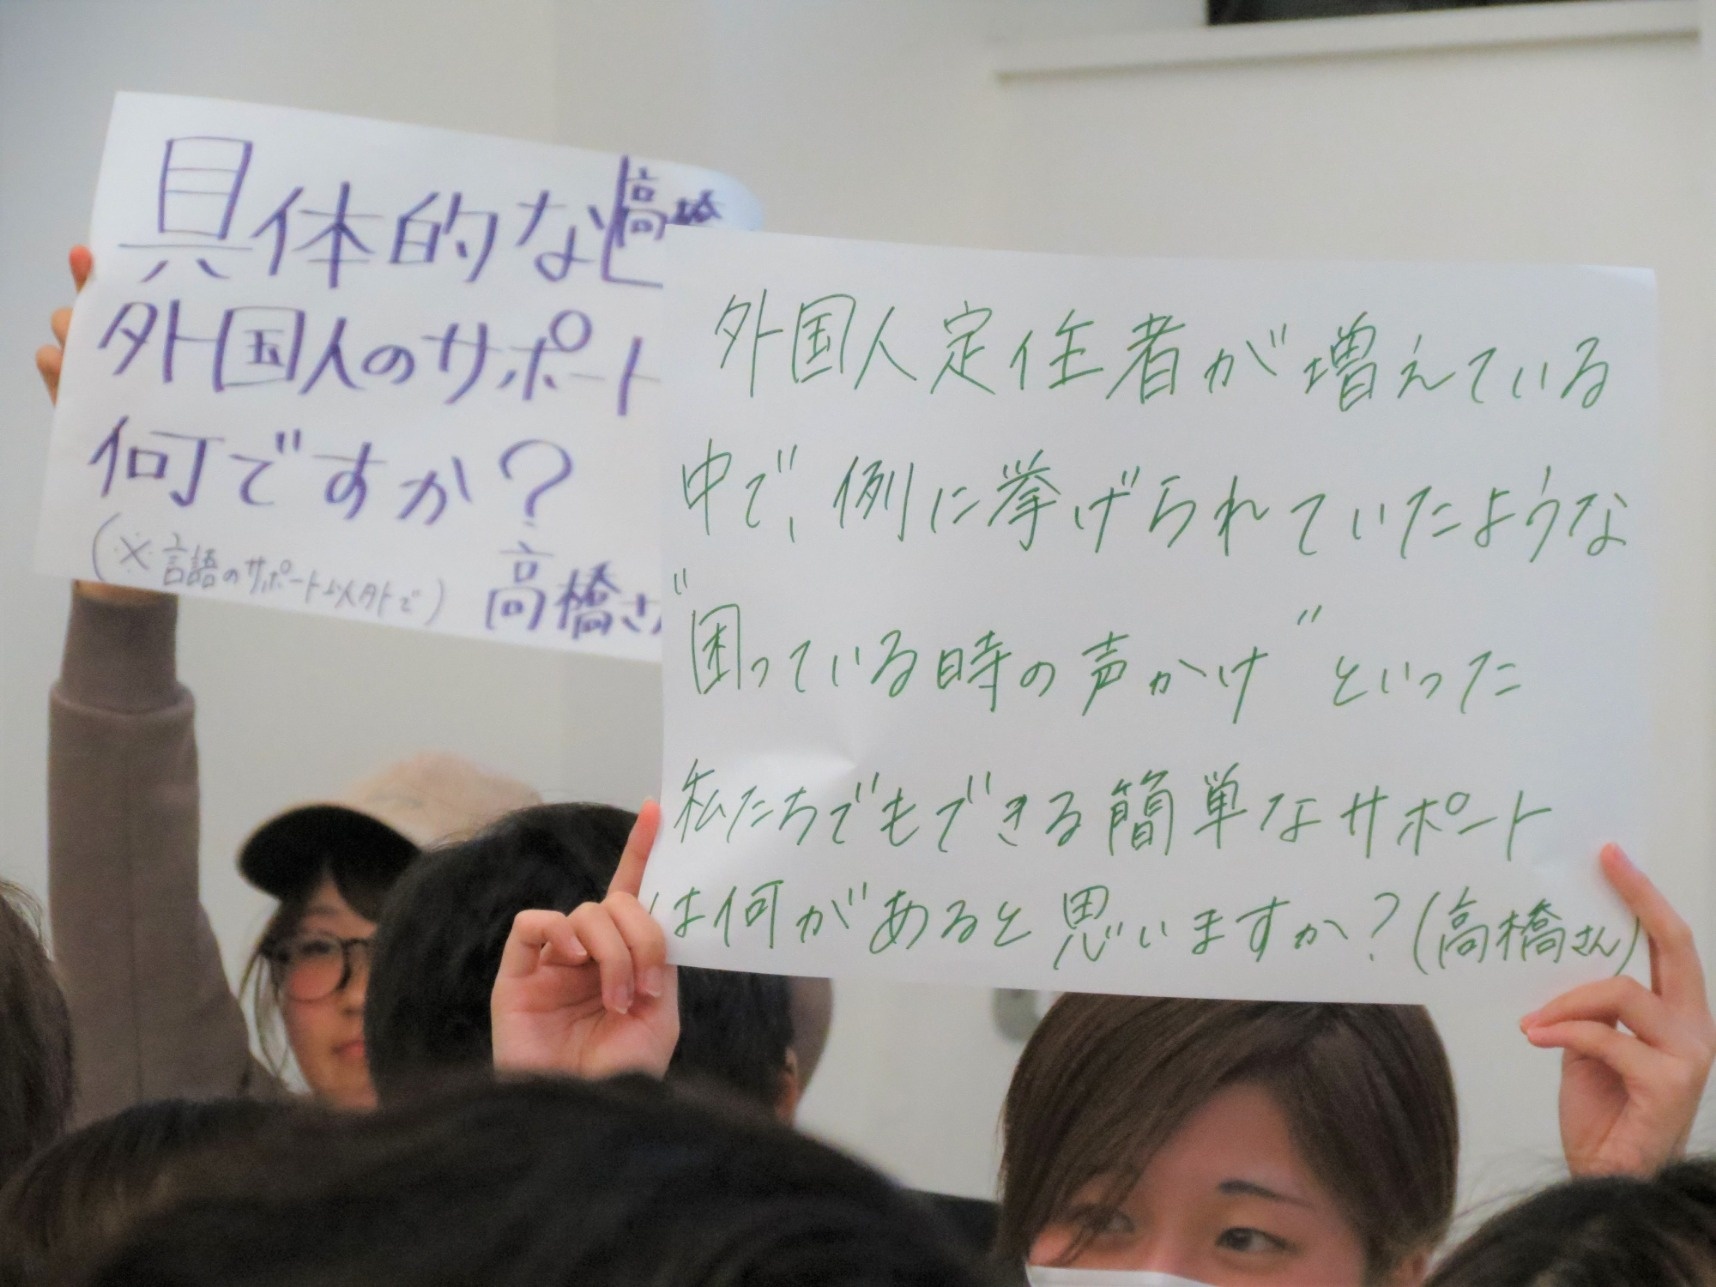 具体的な
高橋
外国人のサポート
何ですか?
(※言語のサポート以外で)
高橋さ
外国人定住者が増えている
中で、例に挙げられていたような
"困っている時の声かけ"といった
私たちでもできる簡単なサポート
は何があると思いますか?(高橋さん)